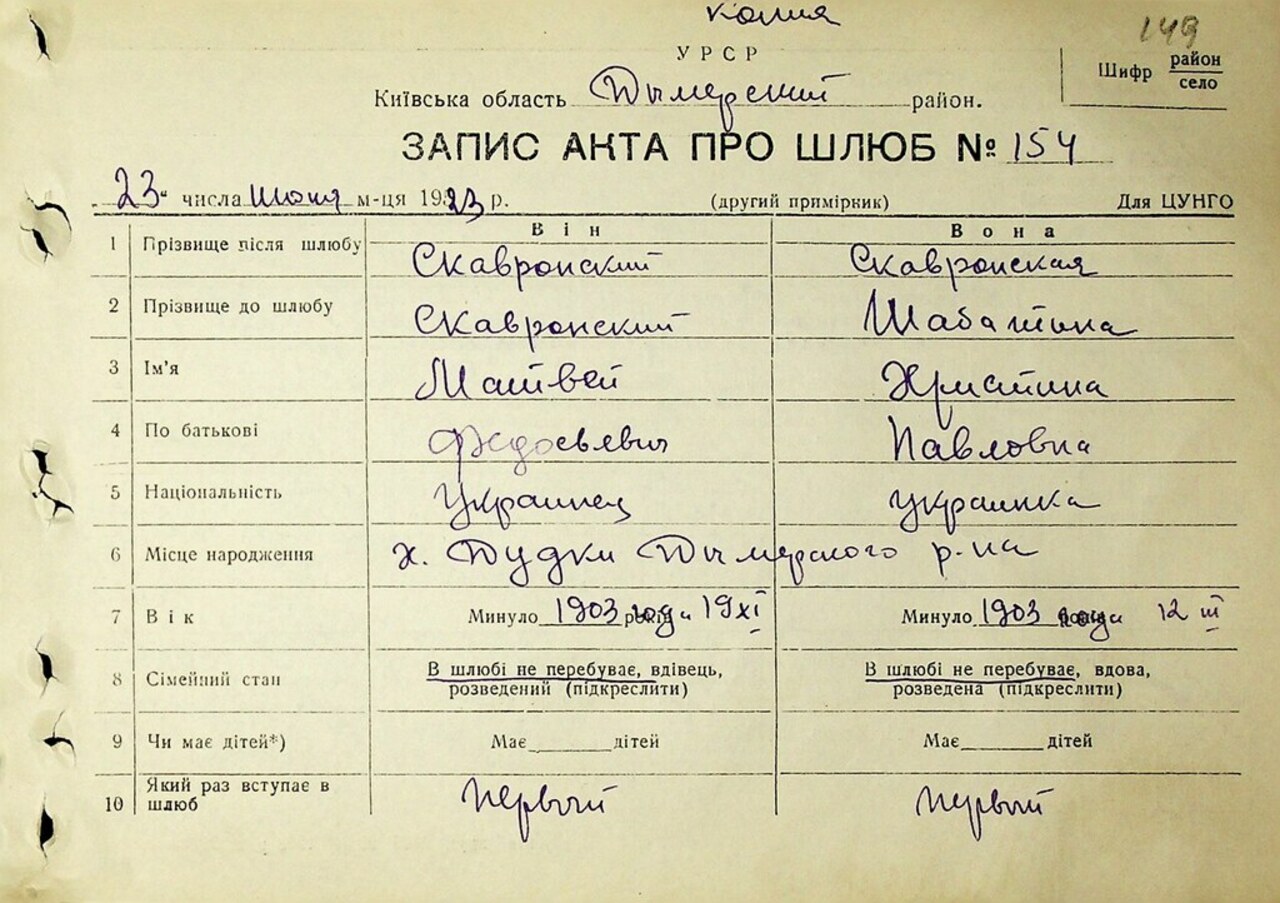 копия
149
УРСР
Шифр район село
Київська область Дымерский район.
ЗАПИС АКТА ПРО ШЛЮБ № 154
23" числа июня м-ця 1923 р. (другий примірник) Для ЦУНГО
Він Вона
1 Прізвище після шлюбу Скавронский Скавронская
2 Прізвище до шлюбу Скавронский Шабатина
3 Ім'я Матвей Христина
4 По батькові Федосьевич Павловна
5 Національність Украинец украинка
6 Місце народження х. Дудки Дымерского р-на
7 Вік Минуло 1903 года 19 XI Минуло 1903 года 12 III
8 Сімейний стан В шлюбі не перебуває, вдівець, В шлюбі не перебуває, вдова,
розведений (підкреслити) розведена (підкреслити)
9 Чи має дітей*) Має дітей Має дітей
10 Який раз вступає в шлюб первый первый